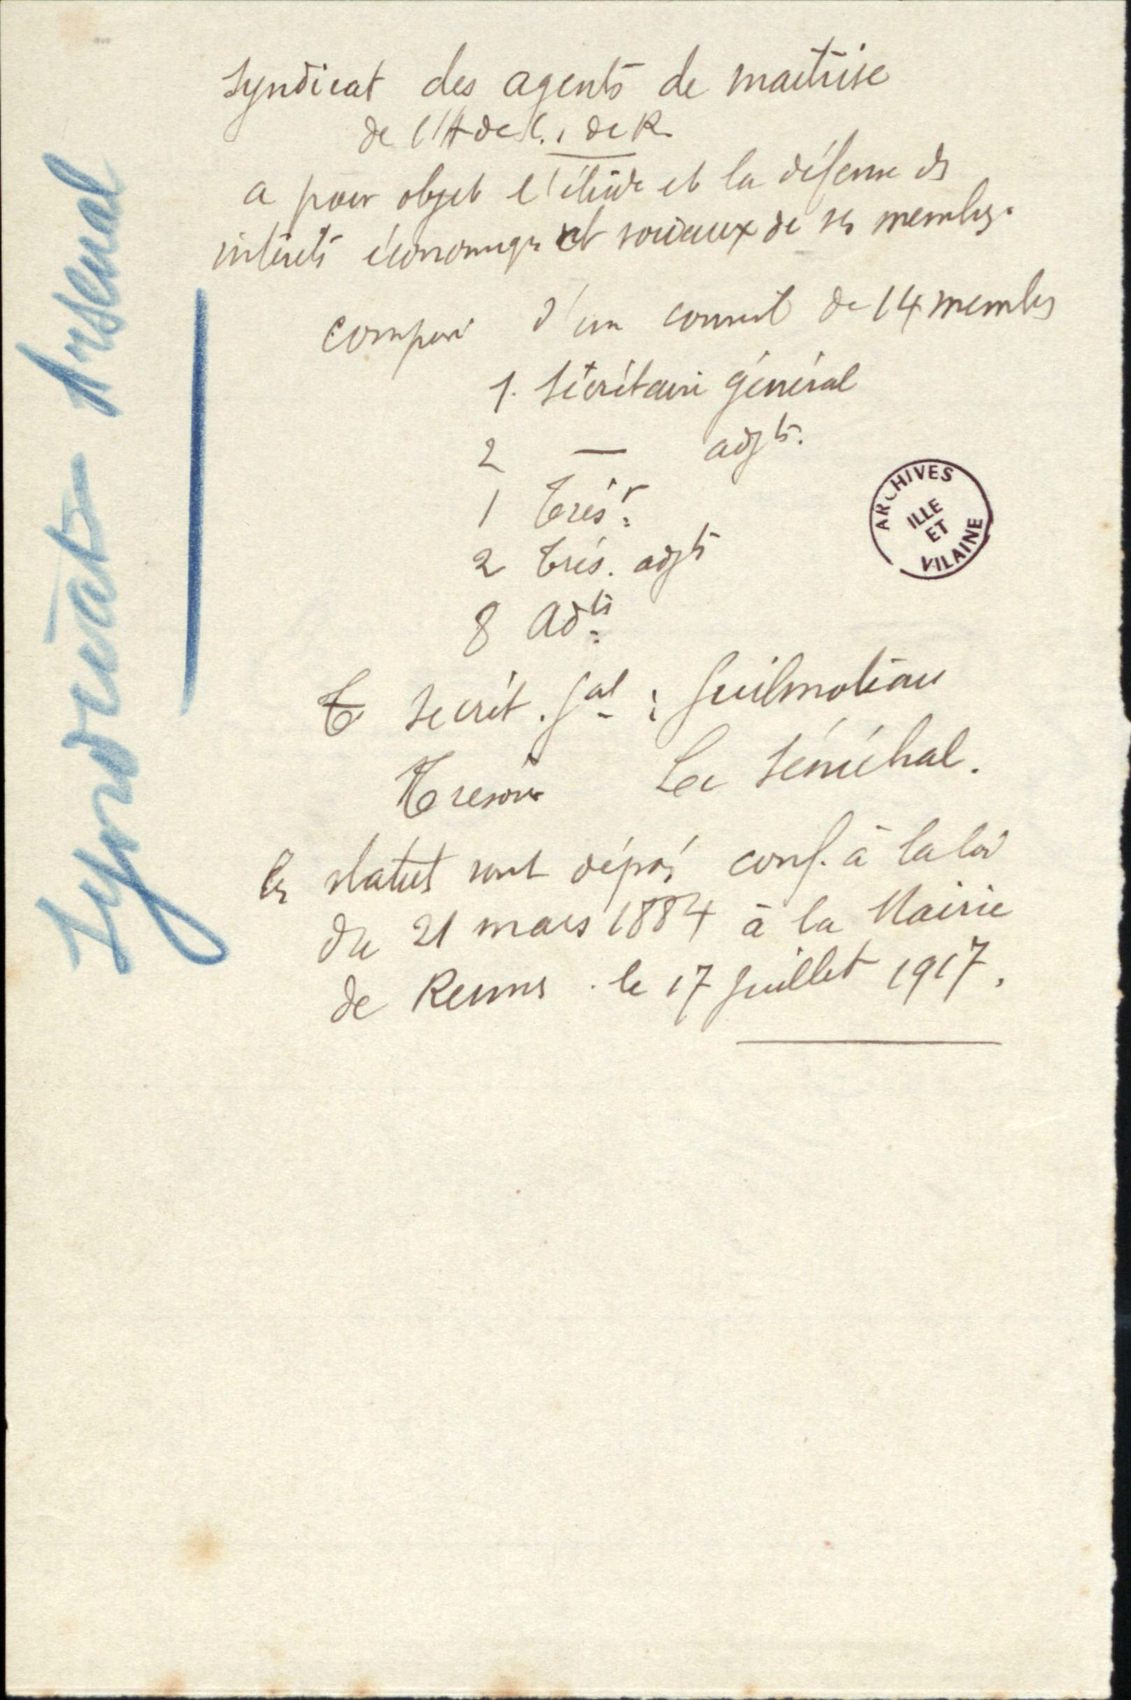 Syndicats Arsenal
Syndicat des agents de maîtrise
de l'A de C. de R.
a pour objet l'étude et la défense des
intérêts économiqs et sociaux de ses membres.
composé d'un conseil de 14 membres
1. Secrétaire général
2 — adjts.
1 Trésr.
2 Trés. adjts
8 Adts
Secrit. Gal : Guilmotiau
Tresorier Le Sénéchal.
les statuts sont déposés conf. à la loi
du 21 mars 1884 à la Mairie
de Rennes. le 17 juillet 1917.
ARCHIVES
ILLE
ET
VILAINE